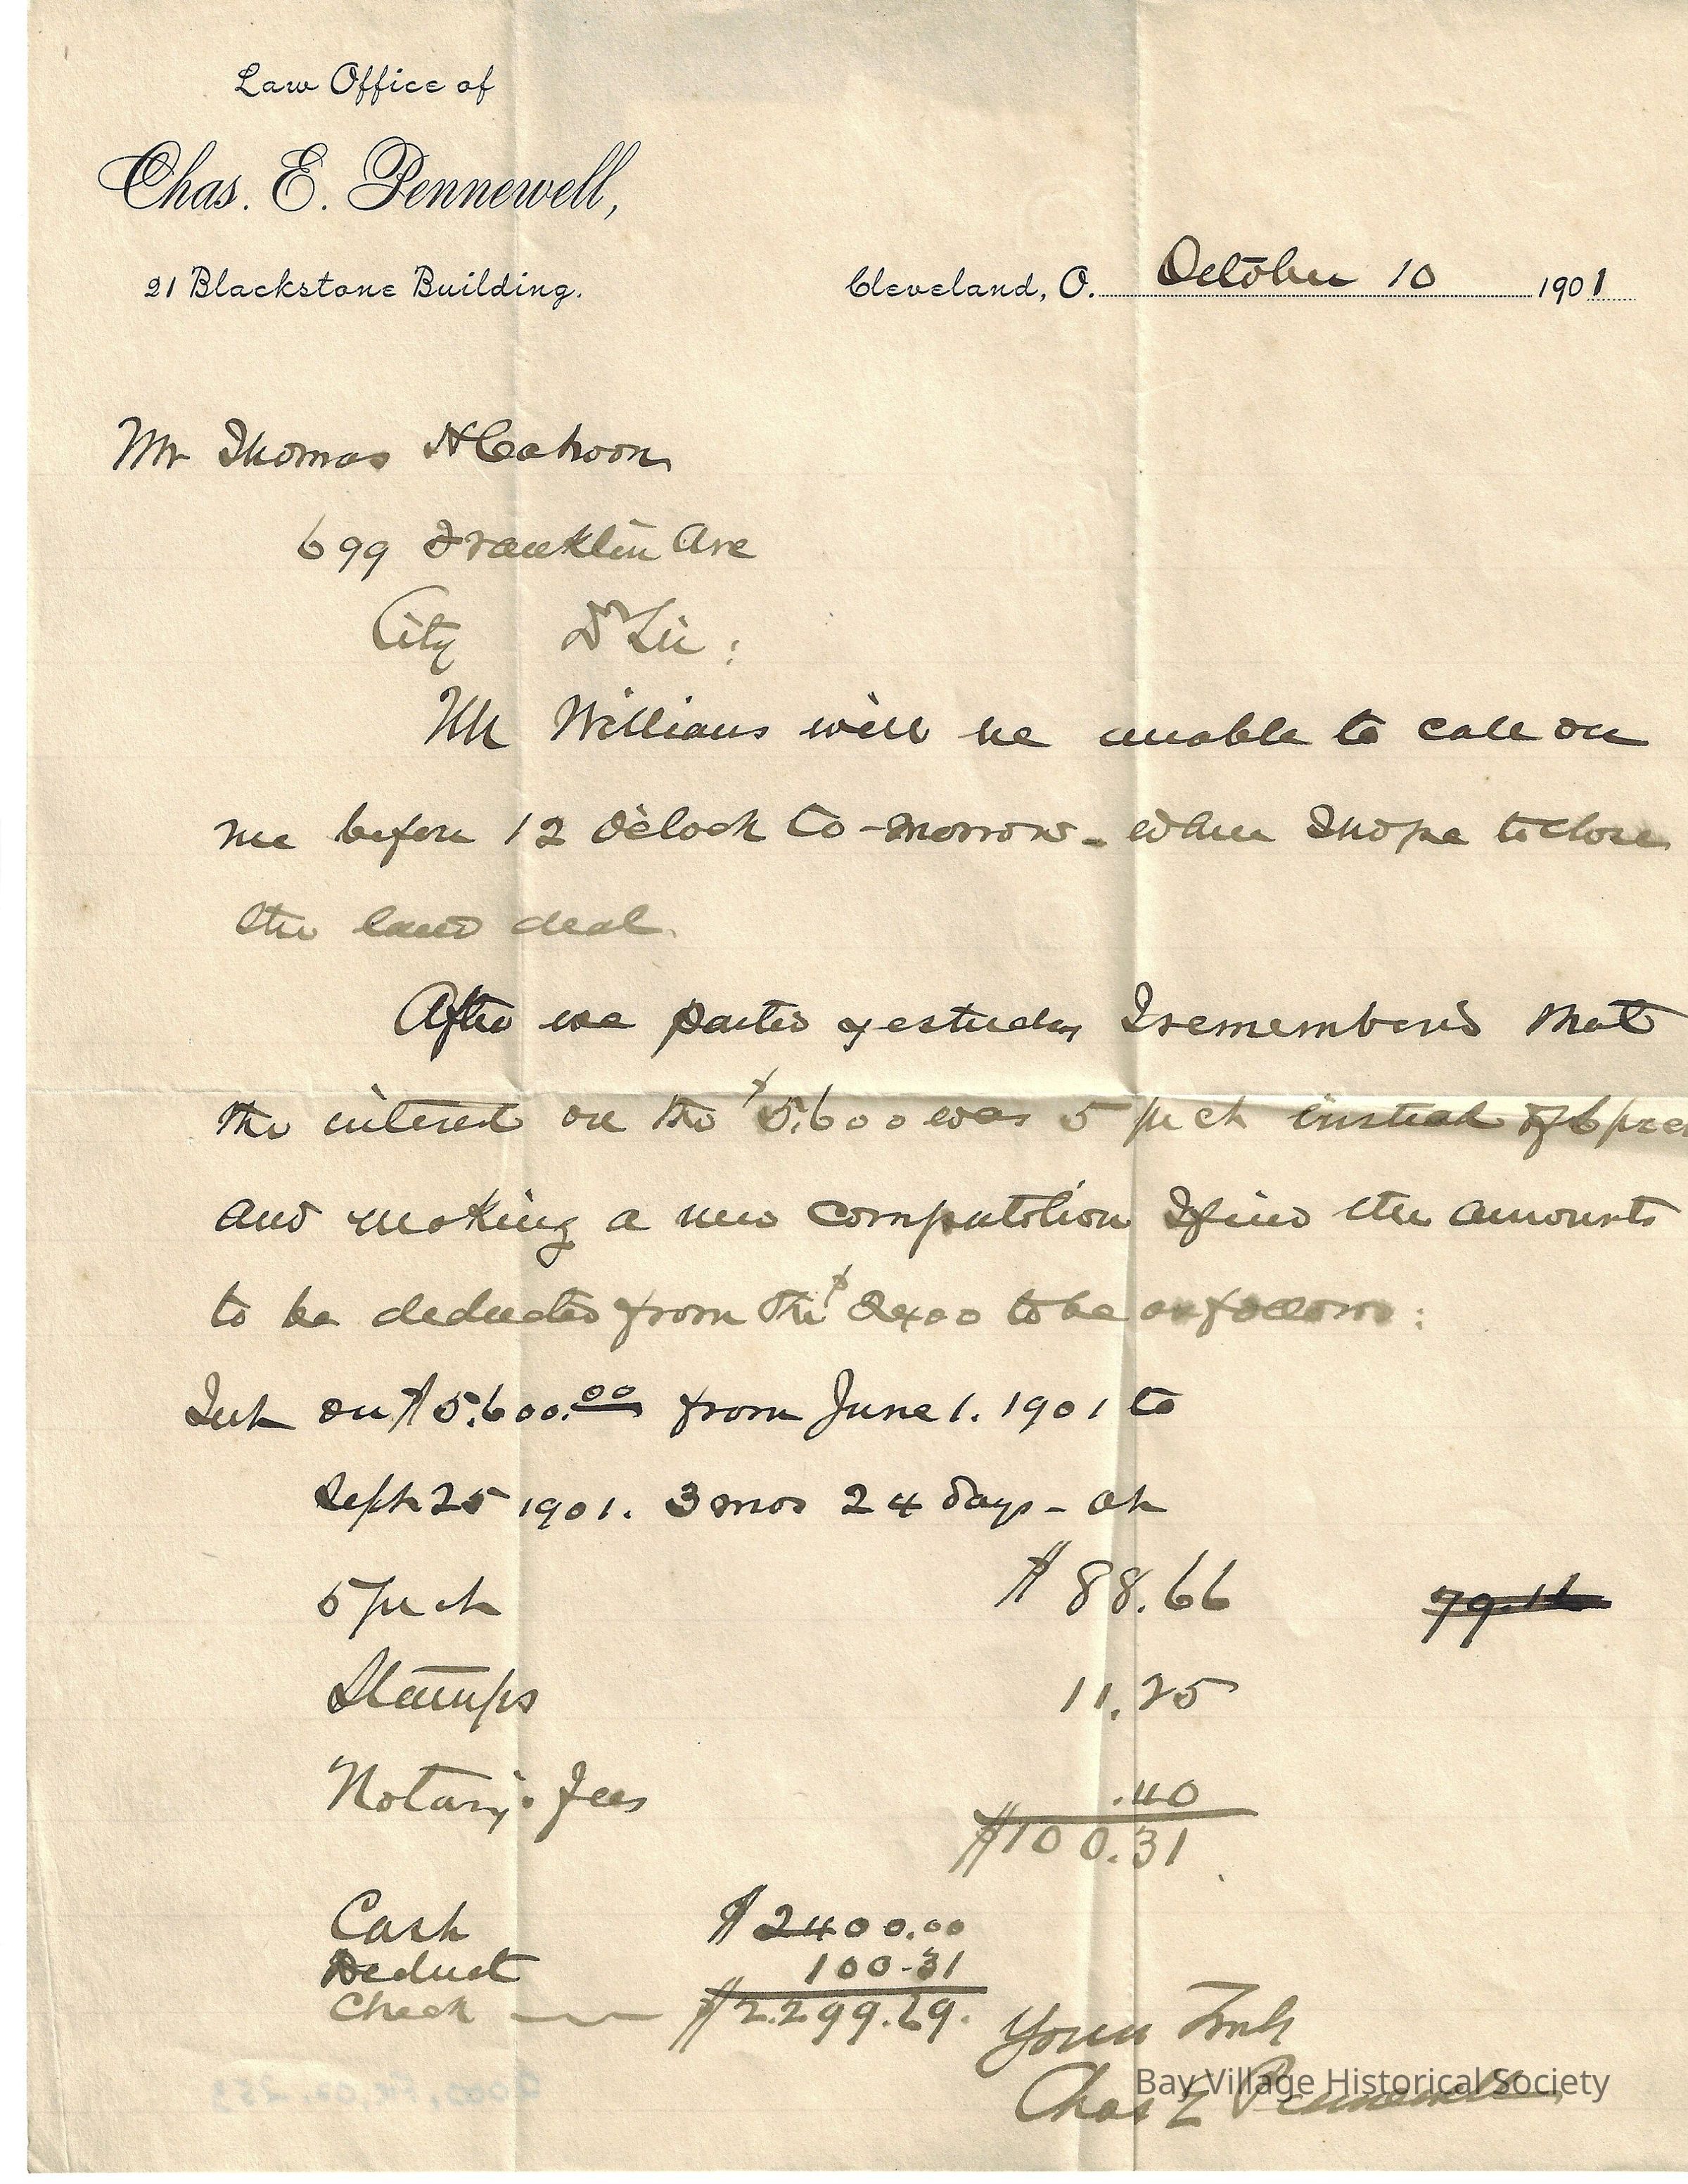 Law Office of
Chas. E. Pennewell,
21 Blackstone Building.
Cleveland, O. October 10 1901
Mr Thomas H Cahoon
699 Franklin Ave
City D Sir:
Mr Williams will be unable to call on
me before 12 o'clock to-morrow - when I hope to close
the land deal.
After we parted yesterday I remembered that
the interest on the $5,600 was 5 per ct instead of 6 per
and making a new computation I find the amounts
to be deducted from the $2400 to be as follows:
Int on $5,600.00 from June 1. 1901 to
Sept 25 1901. 3 mos 24 days - at
5 per ct $88.66 79.16
Stamps 11.25
Notary. Fees .40
$100.31
Cash $2400.00
Deduct 100.31
Check $2.299.69.
Yours Truly
Chas E Pennewell
Bay Village Historical Society